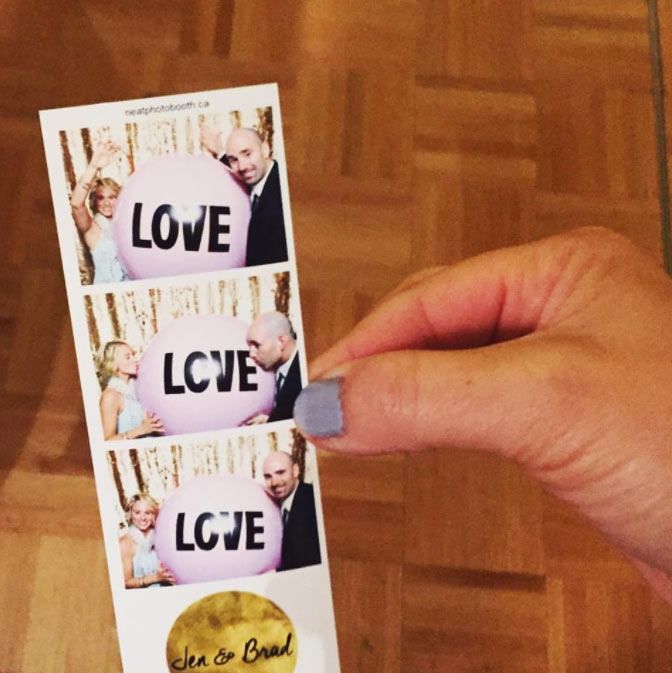 neatphotobooth.ca
LOVE
LOVE
LOVE
Jen & Brad